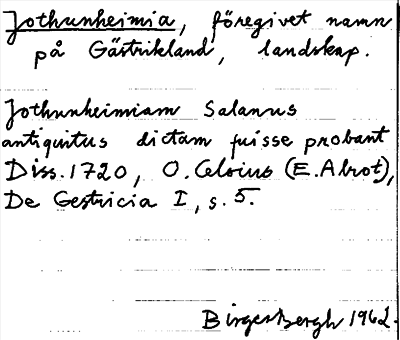 Jothunheimia, föregivet namn
på Gästrikland, landskap.
Jothunheimiam Salanus
antiquitus dictam fuisse probant
Diss. 1720, O. Celsius (E. Alrot),
De Gestricia I, s. 5.
Birger Bergh 1962.